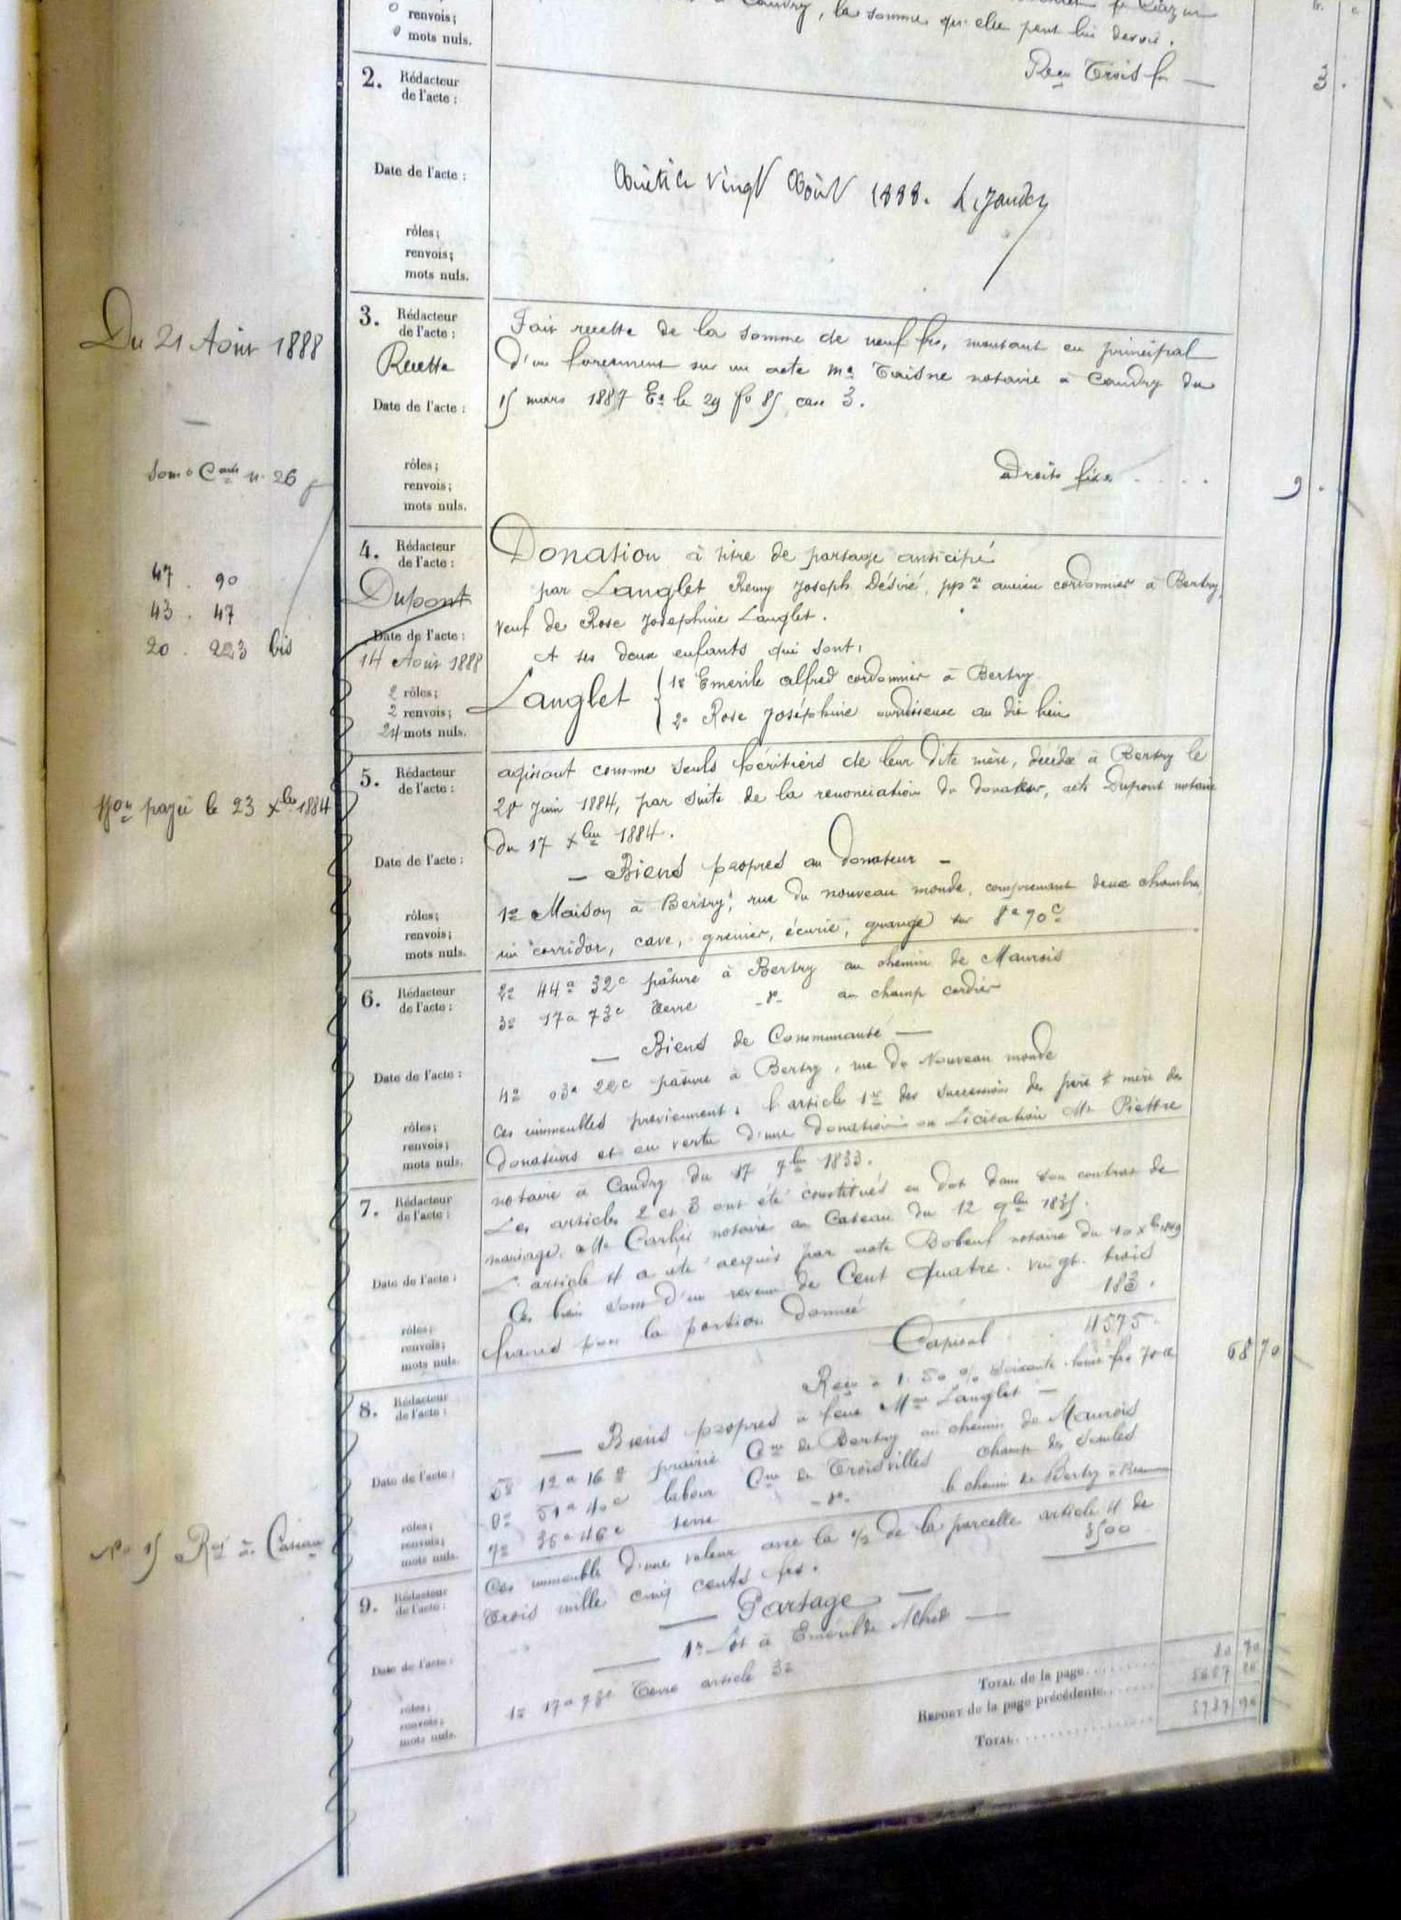 0 renvois;
0 mots nuls.
à Caudry, la somme qu'elle peut lui devoir.
Reçu Trois fr
3 .
2. Rédacteur
de l'acte :
Date de l'acte :
rôles;
renvois;
mots nuls.
vingt Août 1888.
Du 21 Août 1888
3. Rédacteur
de l'acte :
Recette
Date de l'acte :
rôles;
renvois;
mots nuls.
Fait recette de la somme de neuf frs, montant en principal
d'un forcement sur un acte Me Taisne notaire à Caudry du
15 mars 1887 Eé le 29 fo 85 case 3.
Droits fixes . . . .
9 .
n. 26
47 . 90
43 . 47
20 . 223 bis
4. Rédacteur
de l'acte :
Dupont
Date de l'acte :
14 Août 1888
2 rôles;
2 renvois;
24 mots nuls.
Donation à titre de partage anticipé
par Langlet Remy Joseph Désiré, ppre ancien cordonnier à Bertry,
veuf de Rose Josephine Langlet.
A ses deux enfants qui sont,
Langlet { 1o Emerile alfred cordonnier à Bertry
2o Rose Joséphine ourdisseuse au dit lieu
payé le 23 Xbre 1884
5. Rédacteur
de l'acte :
Date de l'acte :
rôles;
renvois;
mots nuls.
agissant comme seuls héritiers de leur dite mère, décédée à Bertry le
28 Juin 1884, par suite de la renonciation du donateur, acte Dupont notaire
du 17 Xbre 1884.
— Biens propres au donateur —
1o Maison à Bertry, rue du nouveau monde, comprenant deux chambres,
un corridor, cave, grenier, écurie, grange sur 8a 90c
6. Rédacteur
de l'acte :
Date de l'acte :
rôles;
renvois;
mots nuls.
2o 44a 32c pâture à Bertry au chemin de Maurois
3o 17a 73c Terre -do- au champ cordier
— Biens de Communauté —
4o 03a 22c pâture à Bertry, rue du Nouveau monde
Ces immeubles proviennent : l'article 1er des successions des père & mère des
donateurs et en vertu d'une donation ou Licitation Me Piettre
7. Rédacteur
de l'acte :
Date de l'acte :
rôles;
renvois;
mots nuls.
notaire à Caudry du 17 7bre 1833.
Les articles 2 et 3 ont été constitués en dot dans son contrat de
mariage, Me Carlier notaire au Cateau du 12 9bre 1835.
L'article 4 a été acquis par acte Bobeuf notaire du 10 Xbre 1849
Ces biens sont d'un revenu de Cent quatre-vingt-trois
francs pour la portion donnée 183.
Capital 4575.
8. Rédacteur
de l'acte :
Date de l'acte :
rôles;
renvois;
mots nuls.
Reçu à 1.50 % soixante-huit frs 70c
68 70
— Biens propres à feue Me Langlet —
5o 12a 16c prairie Cne de Bertry au chemin de Maurois
6o 51a 40c labour Cne de Troisvilles champ des Saules
7o 35a 46c terre -do- le chemin de Bertry à
9. Rédacteur
de l'acte :
Date de l'acte :
rôles;
renvois;
mots nuls.
Ces immeubles d'une valeur avec la 1/2 de la parcelle article 4 de
Trois mille cinq cents frs. 3500
— Partage —
— 1er Lot à —
1o 17a 73c Terre article 3o
TOTAL de la page 80 70
REPORT de la page précédente
TOTAL